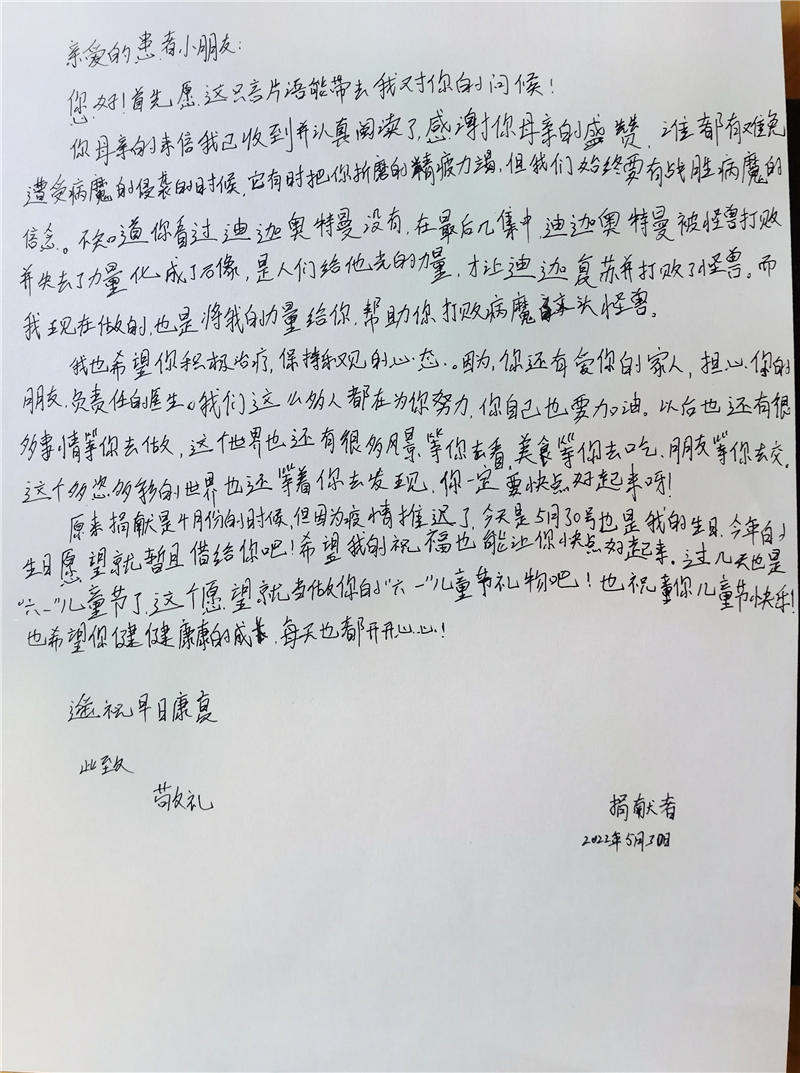 亲爱的患者小朋友：
您好！首先愿这只言片语能带去我对你的问候！
你母亲的来信我已收到并认真阅读了，感谢你母亲的盛赞，谁都有难免
遭受病魔的侵袭的时候，它有时把你折磨的精疲力竭，但我们始终要有战胜病魔的
信念。不知道你看过迪迦奥特曼没有，在最后几集中，迪迦奥特曼被怪兽打败
并失去了力量化成了石像，是人们给他光的力量，才让迪迦复苏并打败了怪兽。而
我现在做的，也是将我的力量给你，帮助你打败病魔这头怪兽。
我也希望你积极治疗，保持乐观的心态。因为，你还有爱你的家人，担心你的
朋友，负责任的医生。我们这么多人都在为你努力，你自己也要加油。以后也还有很
多事情等你去做，这个世界也还有很多风景等你去看，美食等你去吃，朋友等你去交。
这个多姿多彩的世界也还等着你去发现，你一定要快点好起来呀！
原来捐献是4月份的时候，但因为疫情推迟了，今天是5月30号也是我的生日，今年的
生日愿望就暂且借给你吧！希望我的祝福也能让你快点好起来。过几天也是
“六一”儿童节了，这个愿望就当做你的“六一”儿童节礼物吧！也祝童你儿童节快乐！
也希望你健健康康的成长，每天也都开开心心！
遥祝早日康复
此致
敬礼
捐献者
2022年5月30日